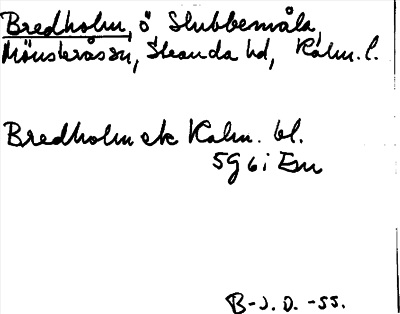 Bredholm, ö Slubbemåla,
Mönsterås sn, Stranda hd, Kalm. l.
Bredholm ek Kalm. bl.
5G 6i Esn
B-J. D. -55.